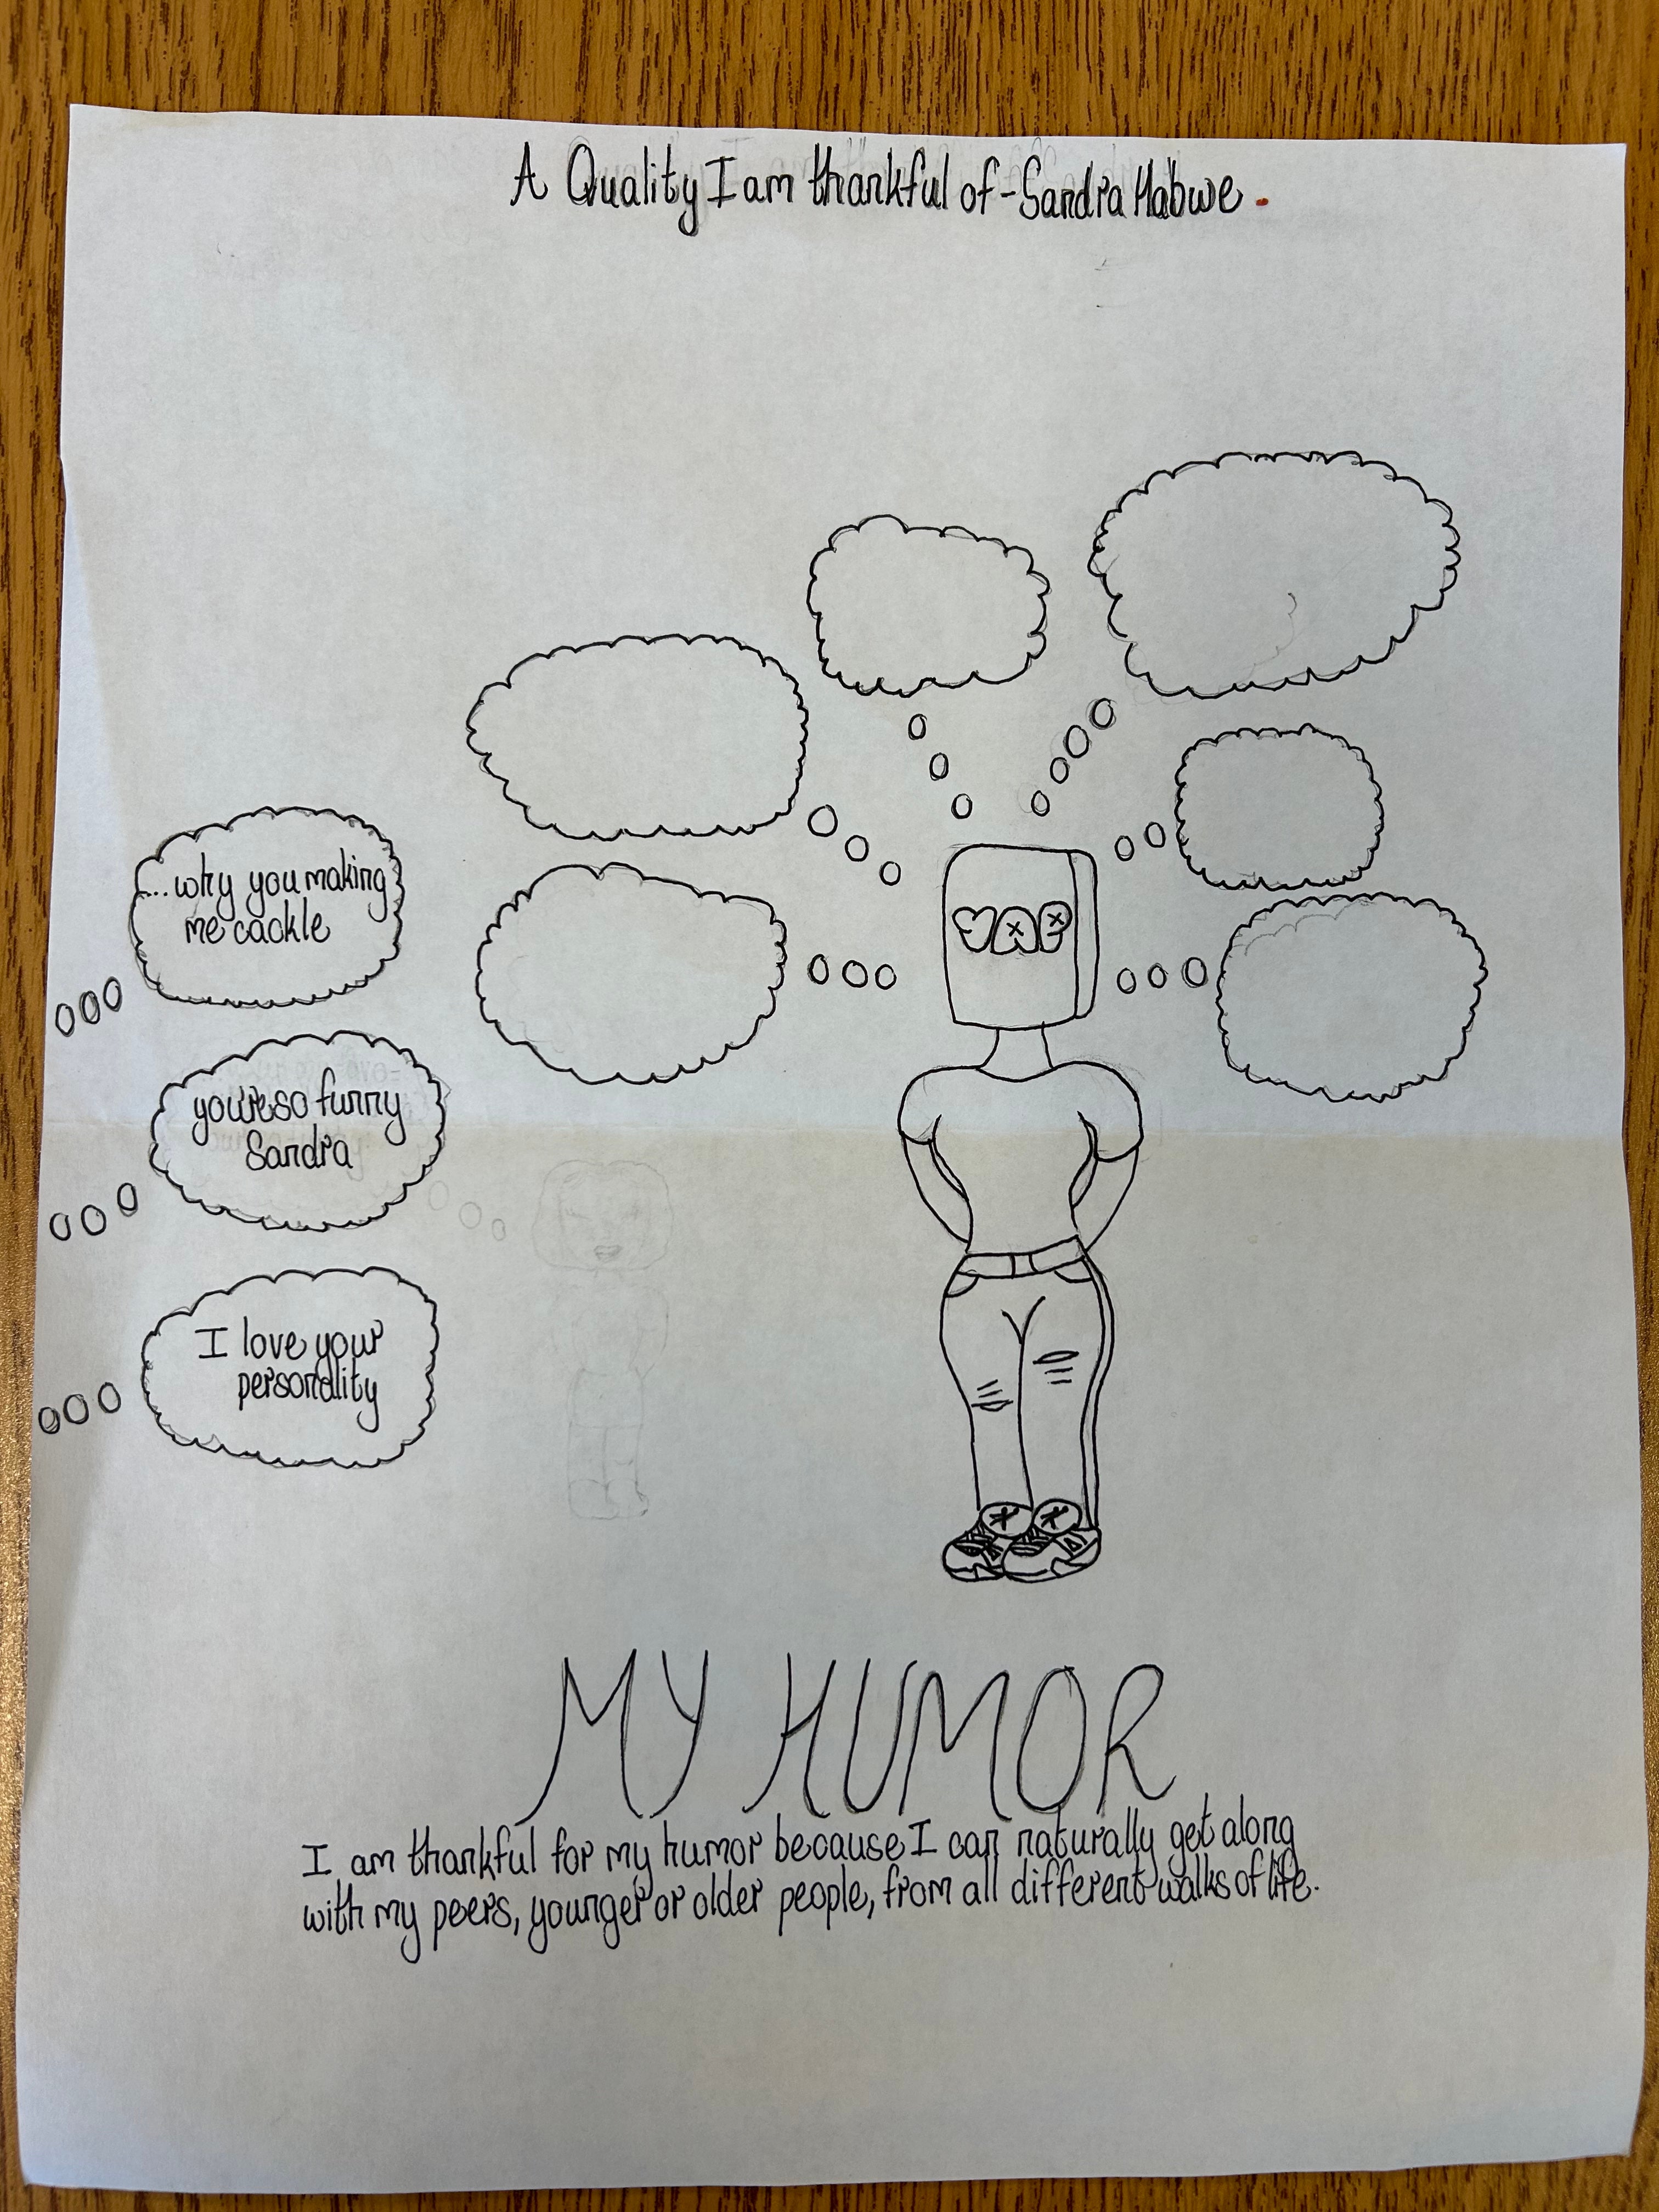 A Quality I am thankful of - Sandra Habwe.
YAP
...why you making
me cackle
you're so funny
Sandra
I love your
personality
MY HUMOR
I am thankful for my humor because I can naturally get along
with my peers, younger or older people, from all different walks of life.